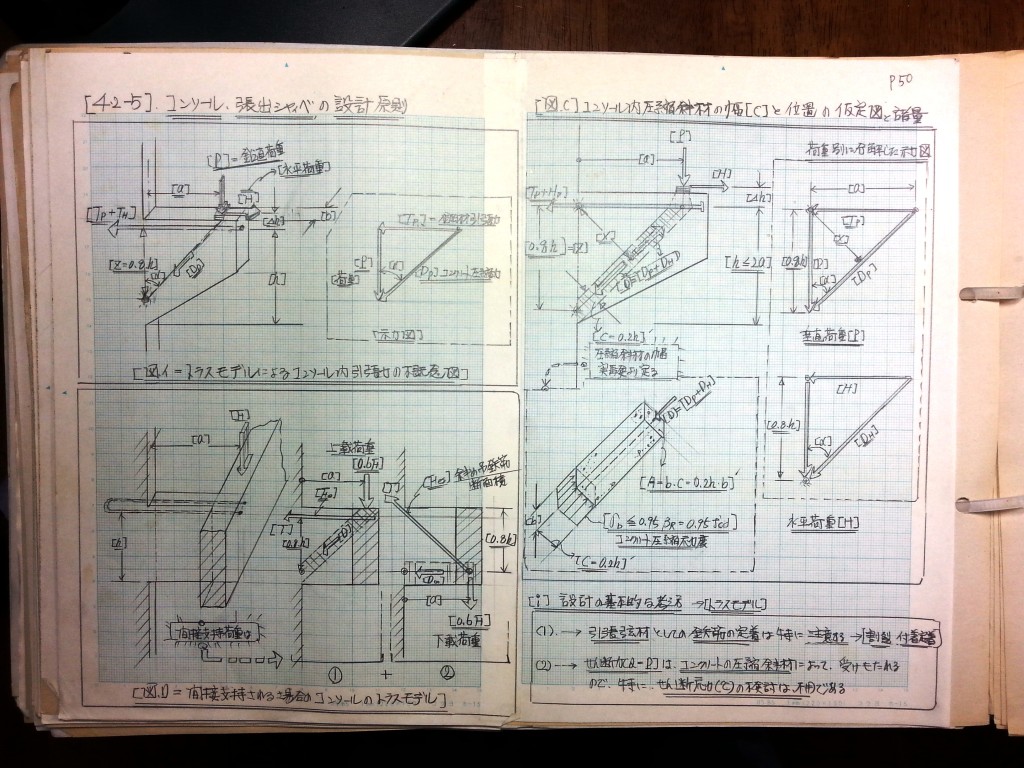 P50
[4-2-5]. コンソール、張出シャイベの設計原則
[P]=鉛直荷重
[水平荷重]
[a]
[H]
[TP+TH]
[Δh]
[b]
[Z=0.8h]
[DP]
[α]
[h]
[TP]=鉄筋材引張力
[P]
荷重
[α]
[DP]コンクリート圧縮力
[示力図]
[図.イ=トラスモデルによるコンソール内引張力の概念図]
[H]
[a]
[h]
間接支持荷重は
上載荷重
[0.6H]
[a]
[T]
[0.8h]
[D]
①
+
[T]
斜め吊鉄筋
断面積
[0.8h]
[a]
[0.6H]
下載荷重
②
[図.D=間接支持される場合のコンソールのトラスモデル]
[図.C]コンソール内圧縮斜材の幅[C]と位置の仮定図と諸量
[P]
[a]
[H]
[TP+HP]
[Δh]
[0.8h]=[Z]
[α]
[D]=[DP+DH]
[h≤2a]
[C=0.2h]
圧縮斜材の幅
実験より定る
荷重別に分解した示力図
[a]
[TP]
[0.8h]
[P]
[α]
[DP]
垂直荷重[P]
[H]
[0.8h]
[α]
[DH]
水平荷重[H]
[D]=[DP+DH]
[A=b.C=0.2h.b]
[b]
コンクリート圧縮応力度
[C=0.2h]
[i] 設計の基本的な考え方 →[トラスモデル]
(1). → 引張弦材としての鉄筋の定着は特に注意する→[割裂、付着定着]
(2) → せん断力[Q=P]は、コンクリートの圧縮斜材によって、受けもたれる
ので、特に、せん断応力(τ)の検討は、不用である